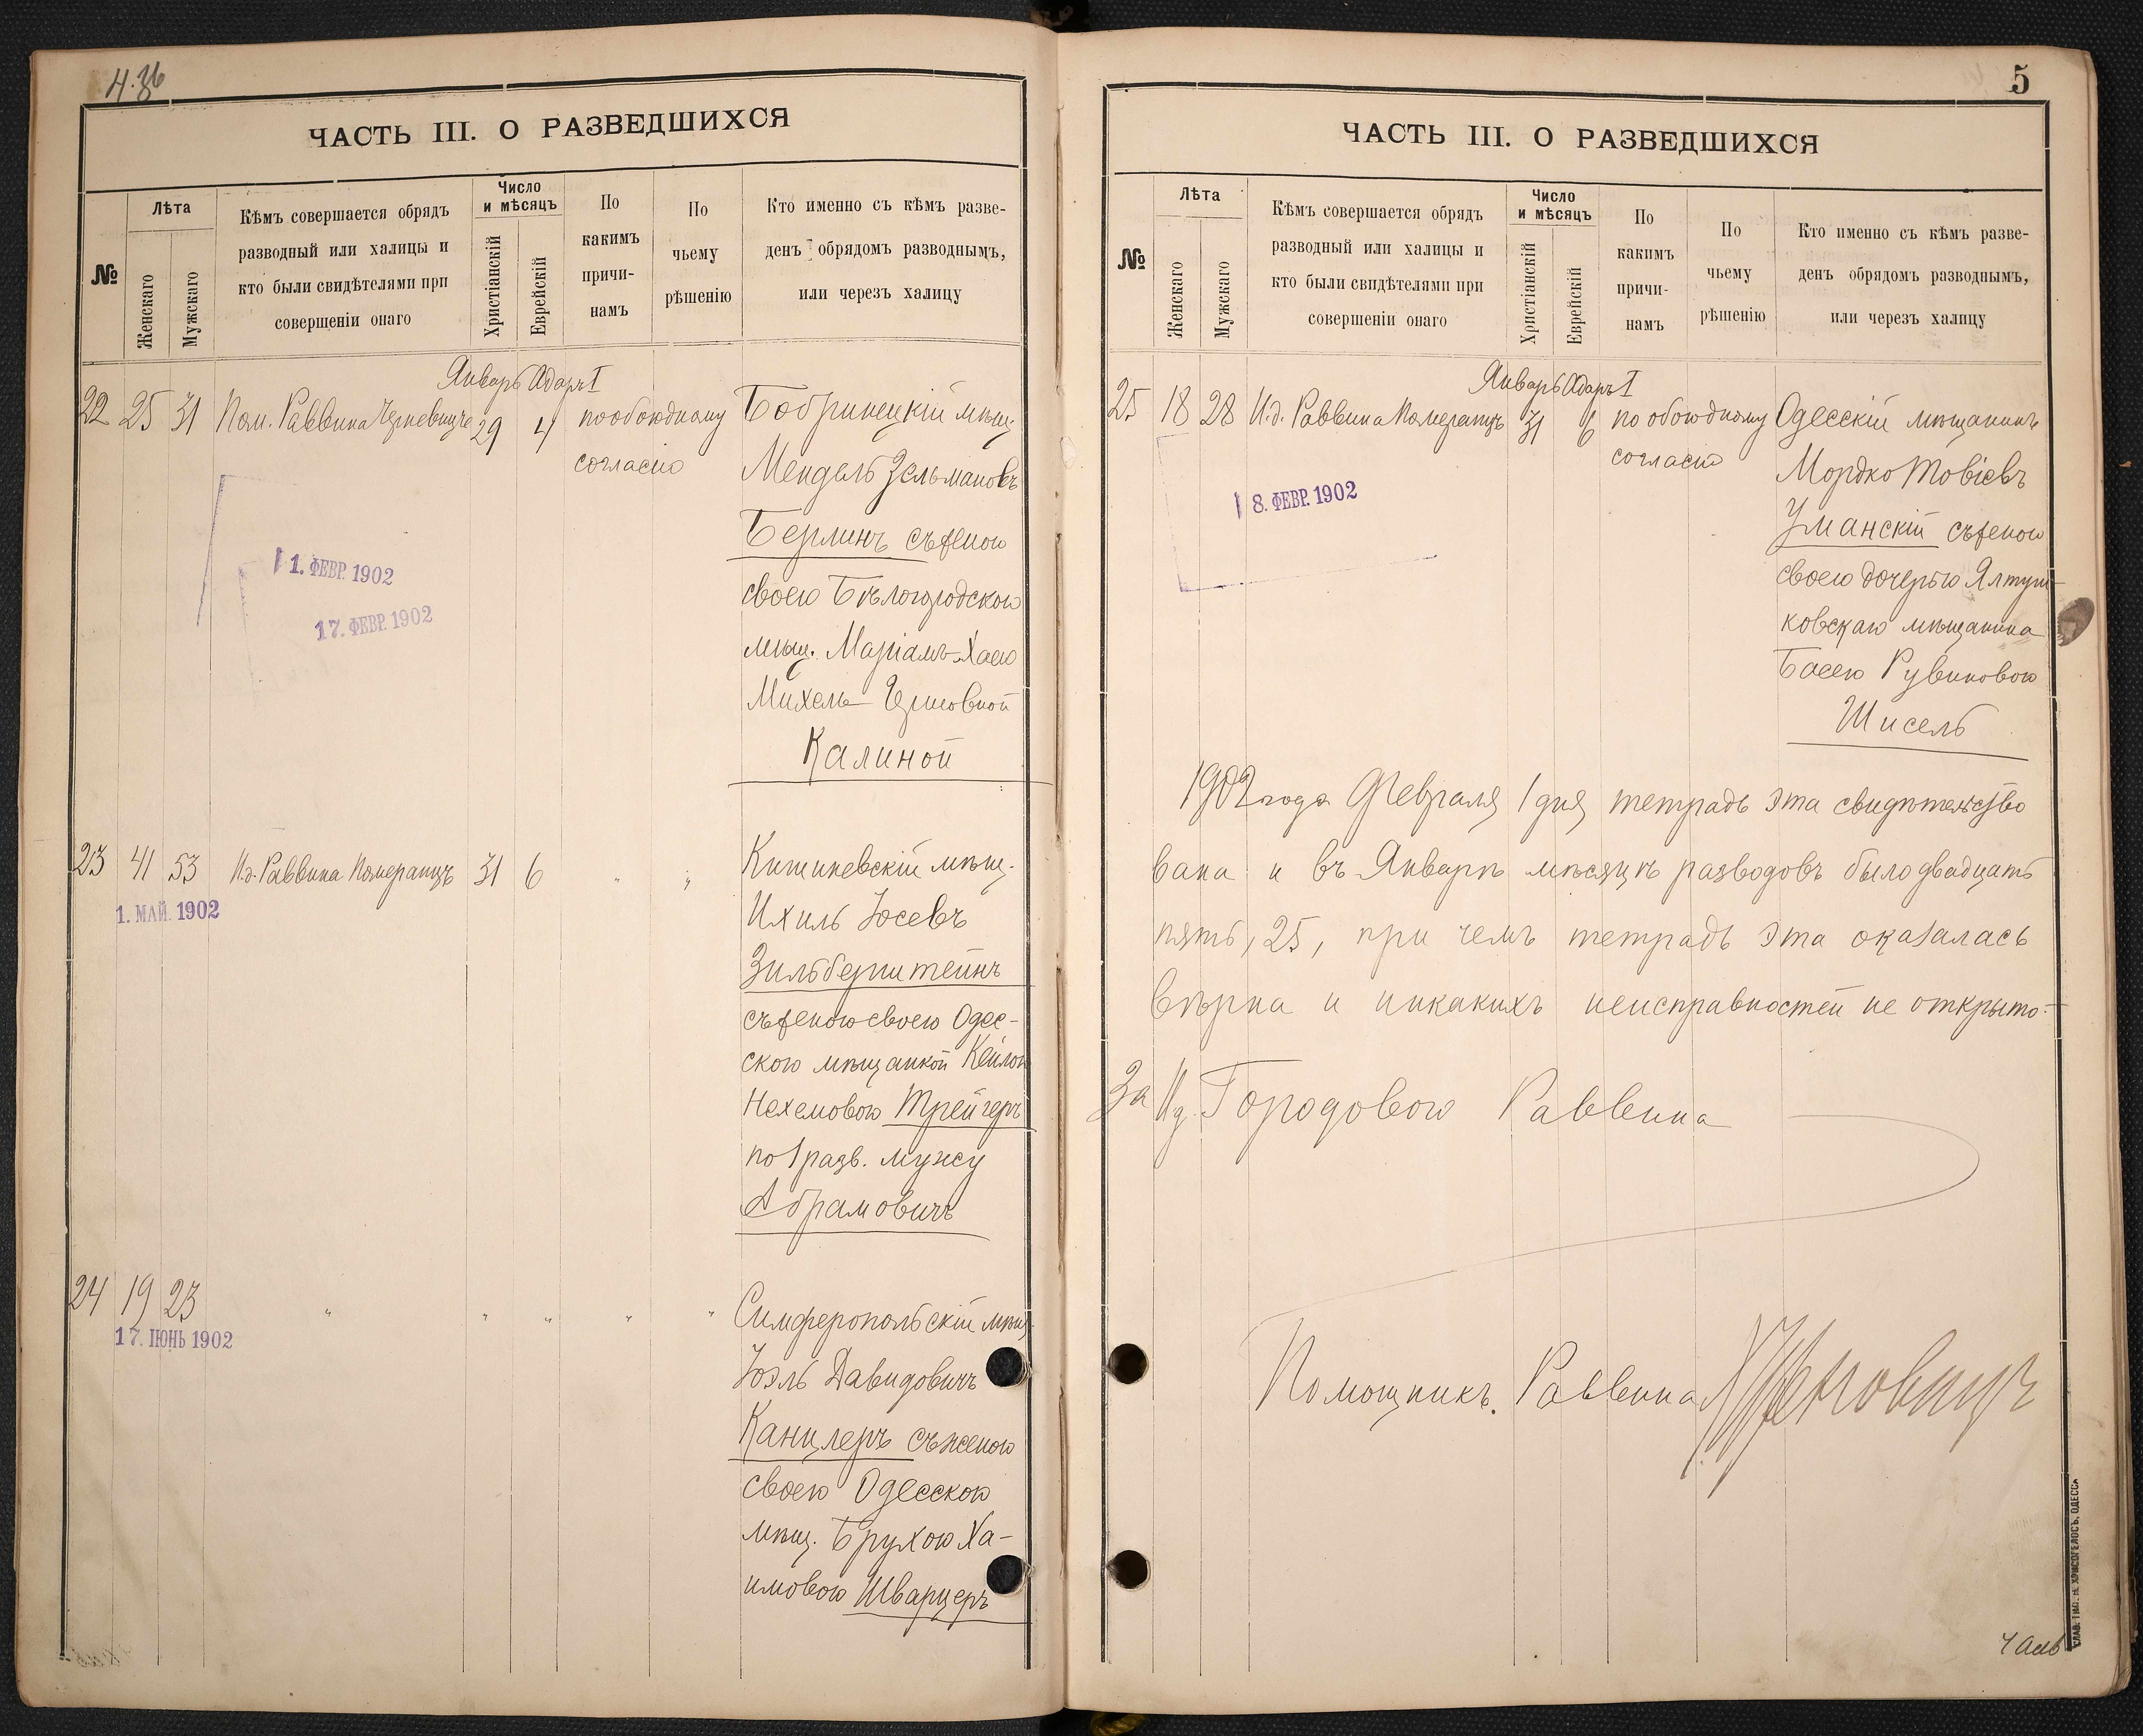 4.36
ЧАСТЬ III. О РАЗВЕДШИХСЯ
№
Лѣта
Женскаго
Мужскаго
Кѣмъ совершается обрядъ
разводный или халицы и
кто были свидѣтелями при
совершеніи онаго
Число
и мѣсяцъ
Христіанскій
Еврейскій
По
какимъ
причи-
намъ
По
чьему
рѣшенію
Кто именно съ кѣмъ разве-
денъ обрядомъ разводнымъ,
или черезъ халицу
Январь Адаръ I
22 25 31 Пом. Раввина 29 4 по обоюдному
согласію
Бобринецкій мѣщ.
Мендель Зельмановъ
Берлинъ съ женою
своею Бѣлогородскою
мѣщ. Маріамъ-Хаею
Михель-Гершовной
Калиной
1. ФЕВР. 1902
17. ФЕВР. 1902
23 41 53 И.д. Раввина Померанцъ 31 6 " "
1. МАЙ. 1902
Кишиневскій мѣщ.
Ихиль Іосевъ
Зильберштейнъ
съ женою своею Одес-
скою мѣщанкой Кейлою
Нехемовою Трейгеръ
по 1 разв. мужу
Абрамовичъ
24 19 23 " " " " "
17. ІЮНЬ 1902
Симферопольскій мѣщ.
Іоэль Давидовичъ
Канцлеръ съ женою
своею Одесскою
мѣщ. Брухою Ха-
имовою Шварцеръ
5
ЧАСТЬ III. О РАЗВЕДШИХСЯ
№
Лѣта
Женскаго
Мужскаго
Кѣмъ совершается обрядъ
разводный или халицы и
кто были свидѣтелями при
совершеніи онаго
Число
и мѣсяцъ
Христіанскій
Еврейскій
По
какимъ
причи-
намъ
По
чьему
рѣшенію
Кто именно съ кѣмъ разве-
денъ обрядомъ разводнымъ,
или черезъ халицу
Январь Адаръ I
25 18 28 И.д. Раввина Померанцъ 31 6 по обоюдному
согласію
Одесскій мѣщанинъ
Мордко Товіевъ
Уманскій съ женою
своею дочерью Ялтуш-
ковскаго мѣщанина
Басею Рувиновою
Шисель
8. ФЕВР. 1902
1902 года Февраля 1 дня тетрадь эта свидѣтельство
вана и въ Январѣ мѣсяцѣ разводовъ было двадцать
пять, 25, при чемъ тетрадь эта оказалась
вѣрна и никакихъ неисправностей не открыто.
За И.д. Городового Раввина
Помощникъ Раввина
СЛАВ. ТИП. Н. ХРИСОГЕЛОСЪ, ОДЕССА